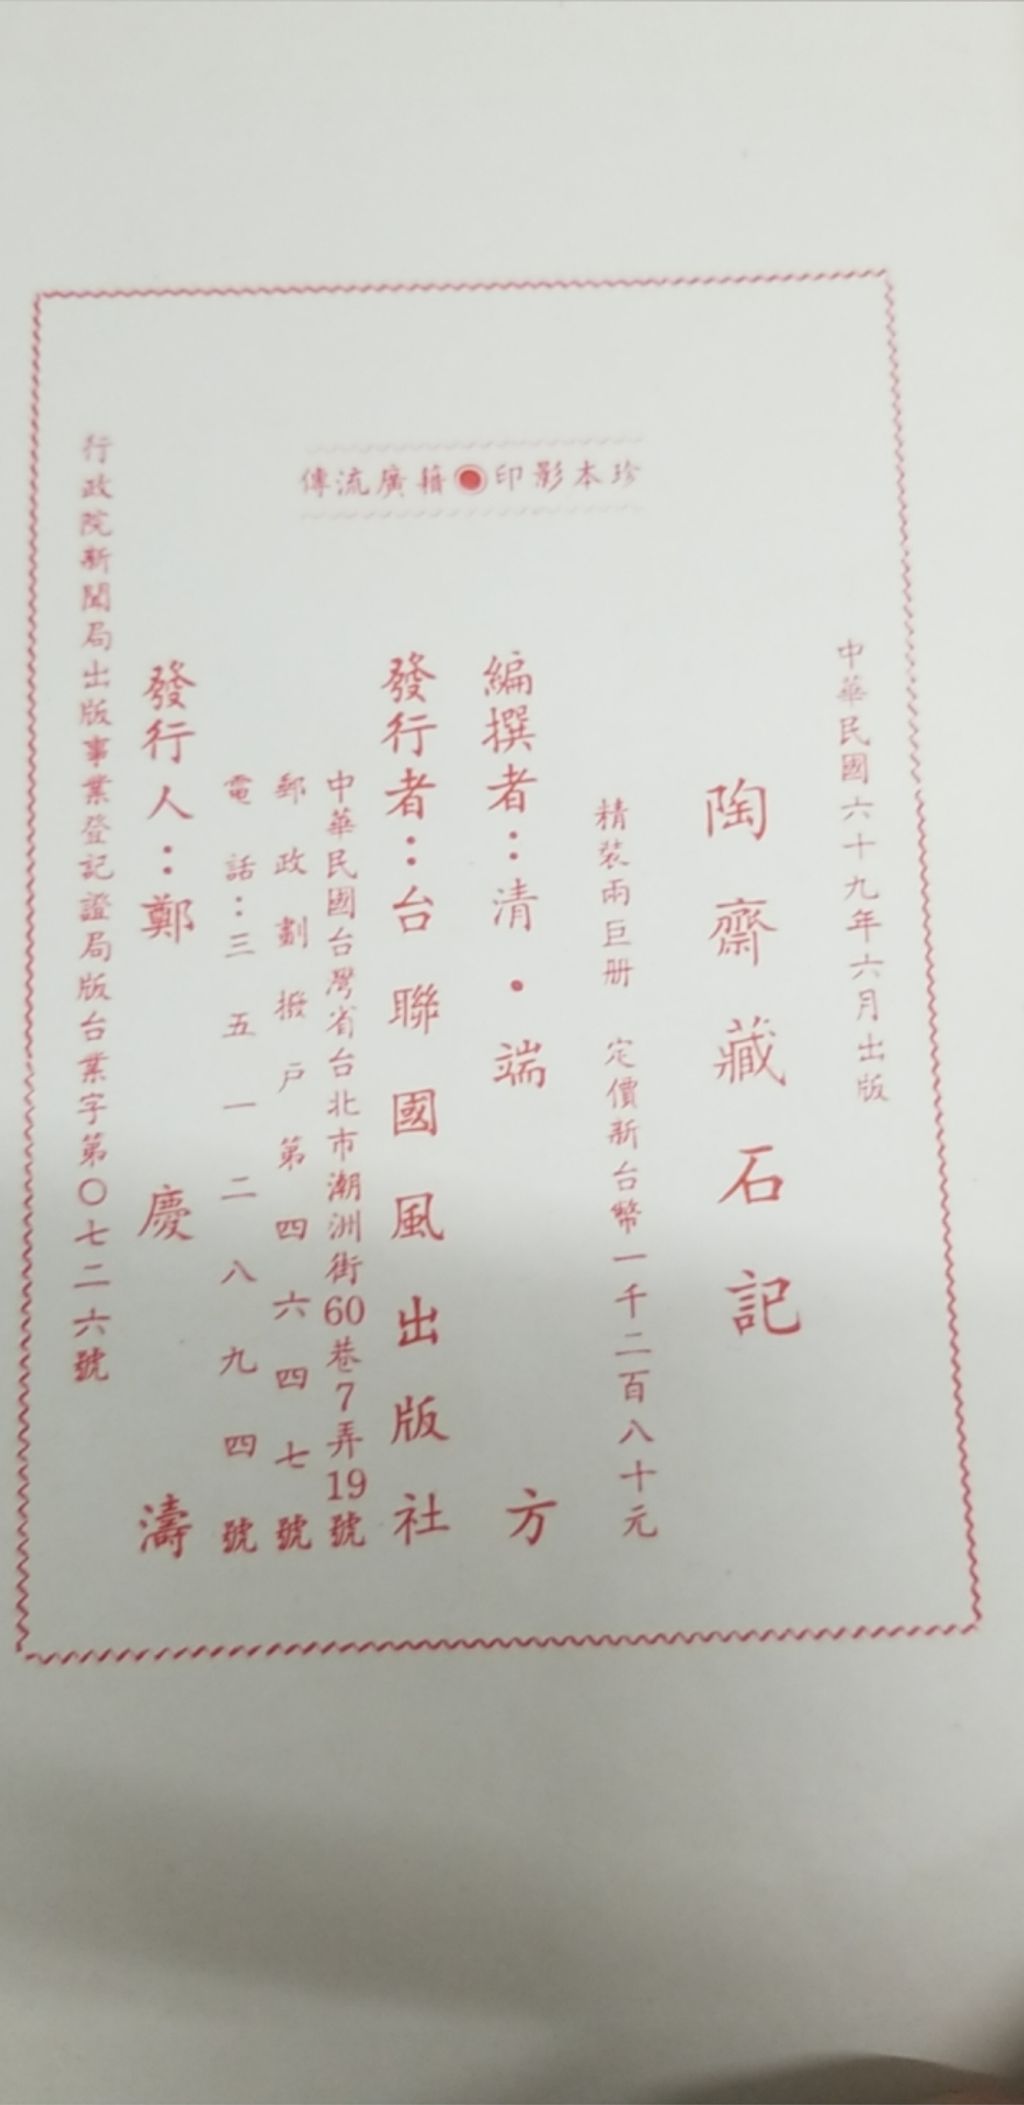 珍本影印●籍廣流傳
中華民國六十九年六月出版
陶齋藏石記
精裝兩巨册 定價新台幣一千二百八十元
編撰者：清・端方
發行者：台聯國風出版社
中華民國台灣省台北市潮洲街60巷7弄19號
郵政劃撥戶第四六四七號
電話：三五一二八九四號
發行人：鄭慶濤
行政院新聞局出版事業登記證局版台業字第〇七二六號